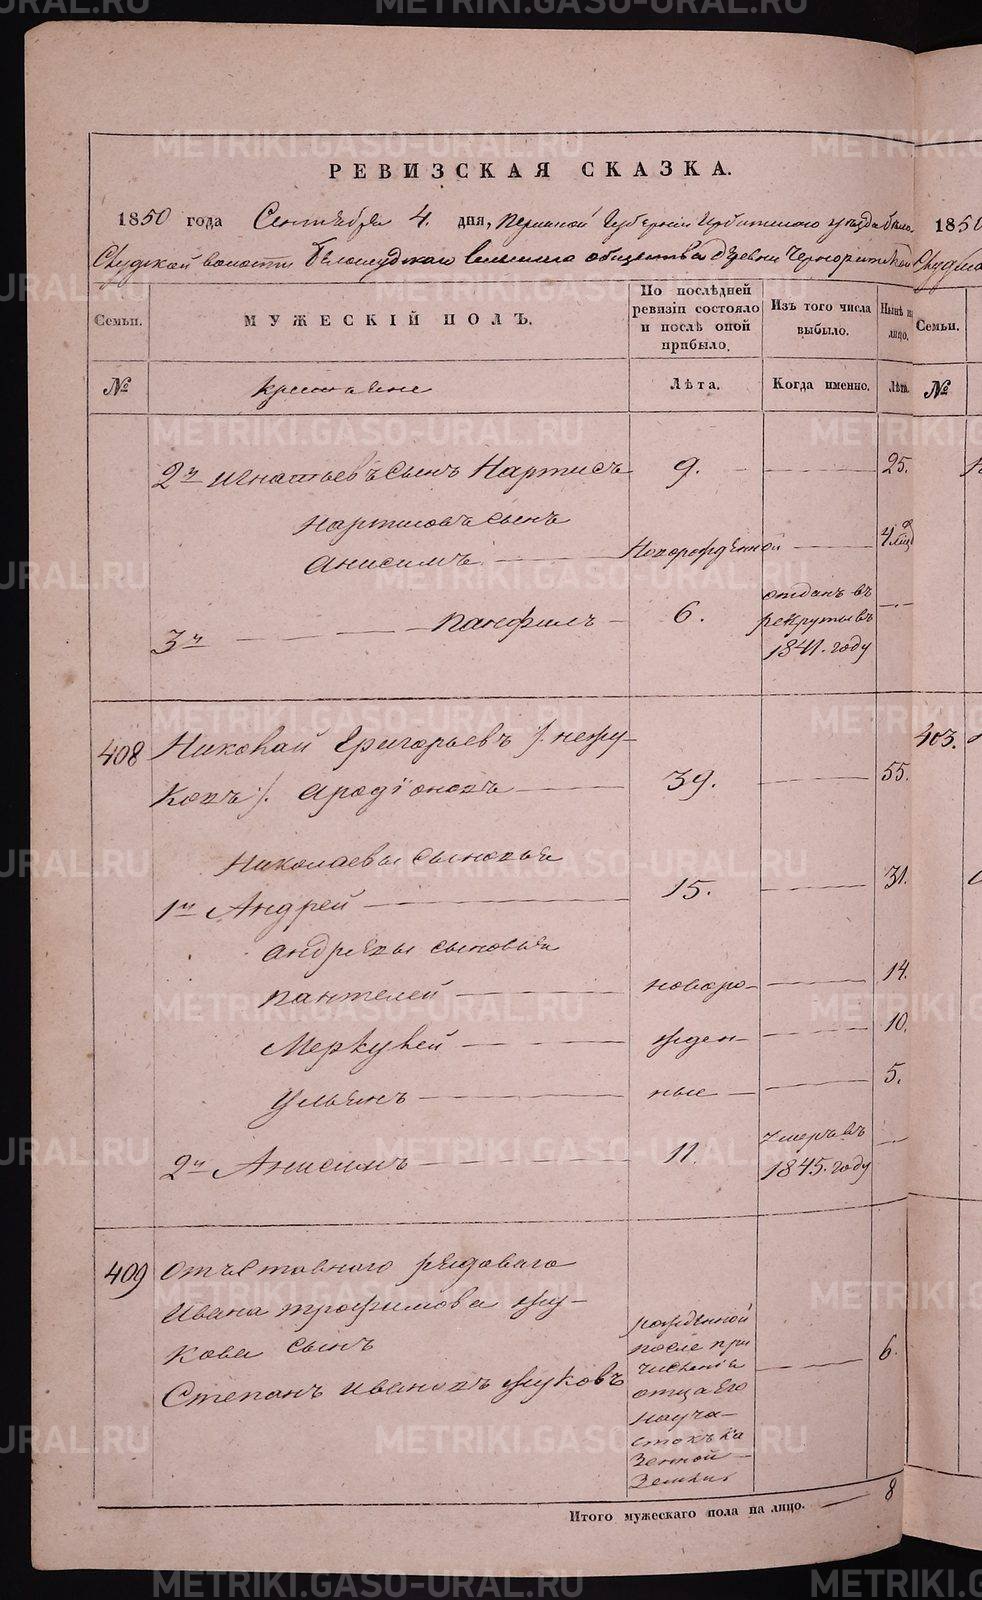 METRIKI.GASO-URAL.RU
РЕВИЗСКАЯ СКАЗКА.
1850 года Сентября 4. дня, Пермской Губернии Ирбитского уезда Бело-
Слудской волости Белослудского сельского общества деревни
Семьи.
МУЖЕСКІЙ ПОЛЪ.
По послѣдней ревизіи состояло и послѣ оной прибыло.
Изъ того числа выбыло.
Нынѣ на лицо.
№
Крестьяне
Лѣта.
Когда именно.
Лѣта.
2й Игнатьевъ сынъ Нартисъ 9. 25.
Нартисовъ сынъ
Анисимъ Новорожденной 4 мѣс
3й Панфилъ 6. отданъ въ рекруты въ 1841. году
408 Николай Григорьевъ /: нежу-
ковъ :/. Ародіоновъ 39. 55.
Николаевы сыновья
1й Андрей 15. 31.
Андреевы сыновья
Пантелей новоро- 14.
Меркулей жден- 10.
Ульянъ ные 5.
2й Анисимъ 11. умеръ въ 1845. году
409 Отъставного рядоваго
Ивана Трофимова Жу-
кова сынъ
Степанъ Ивановъ Жуковъ рожденной после при числения отца его на уча- стокъ ка зенной земли 6.
Итого мужескаго пола на лицо. 8
1850
Слудско
Семьи.
№
403.